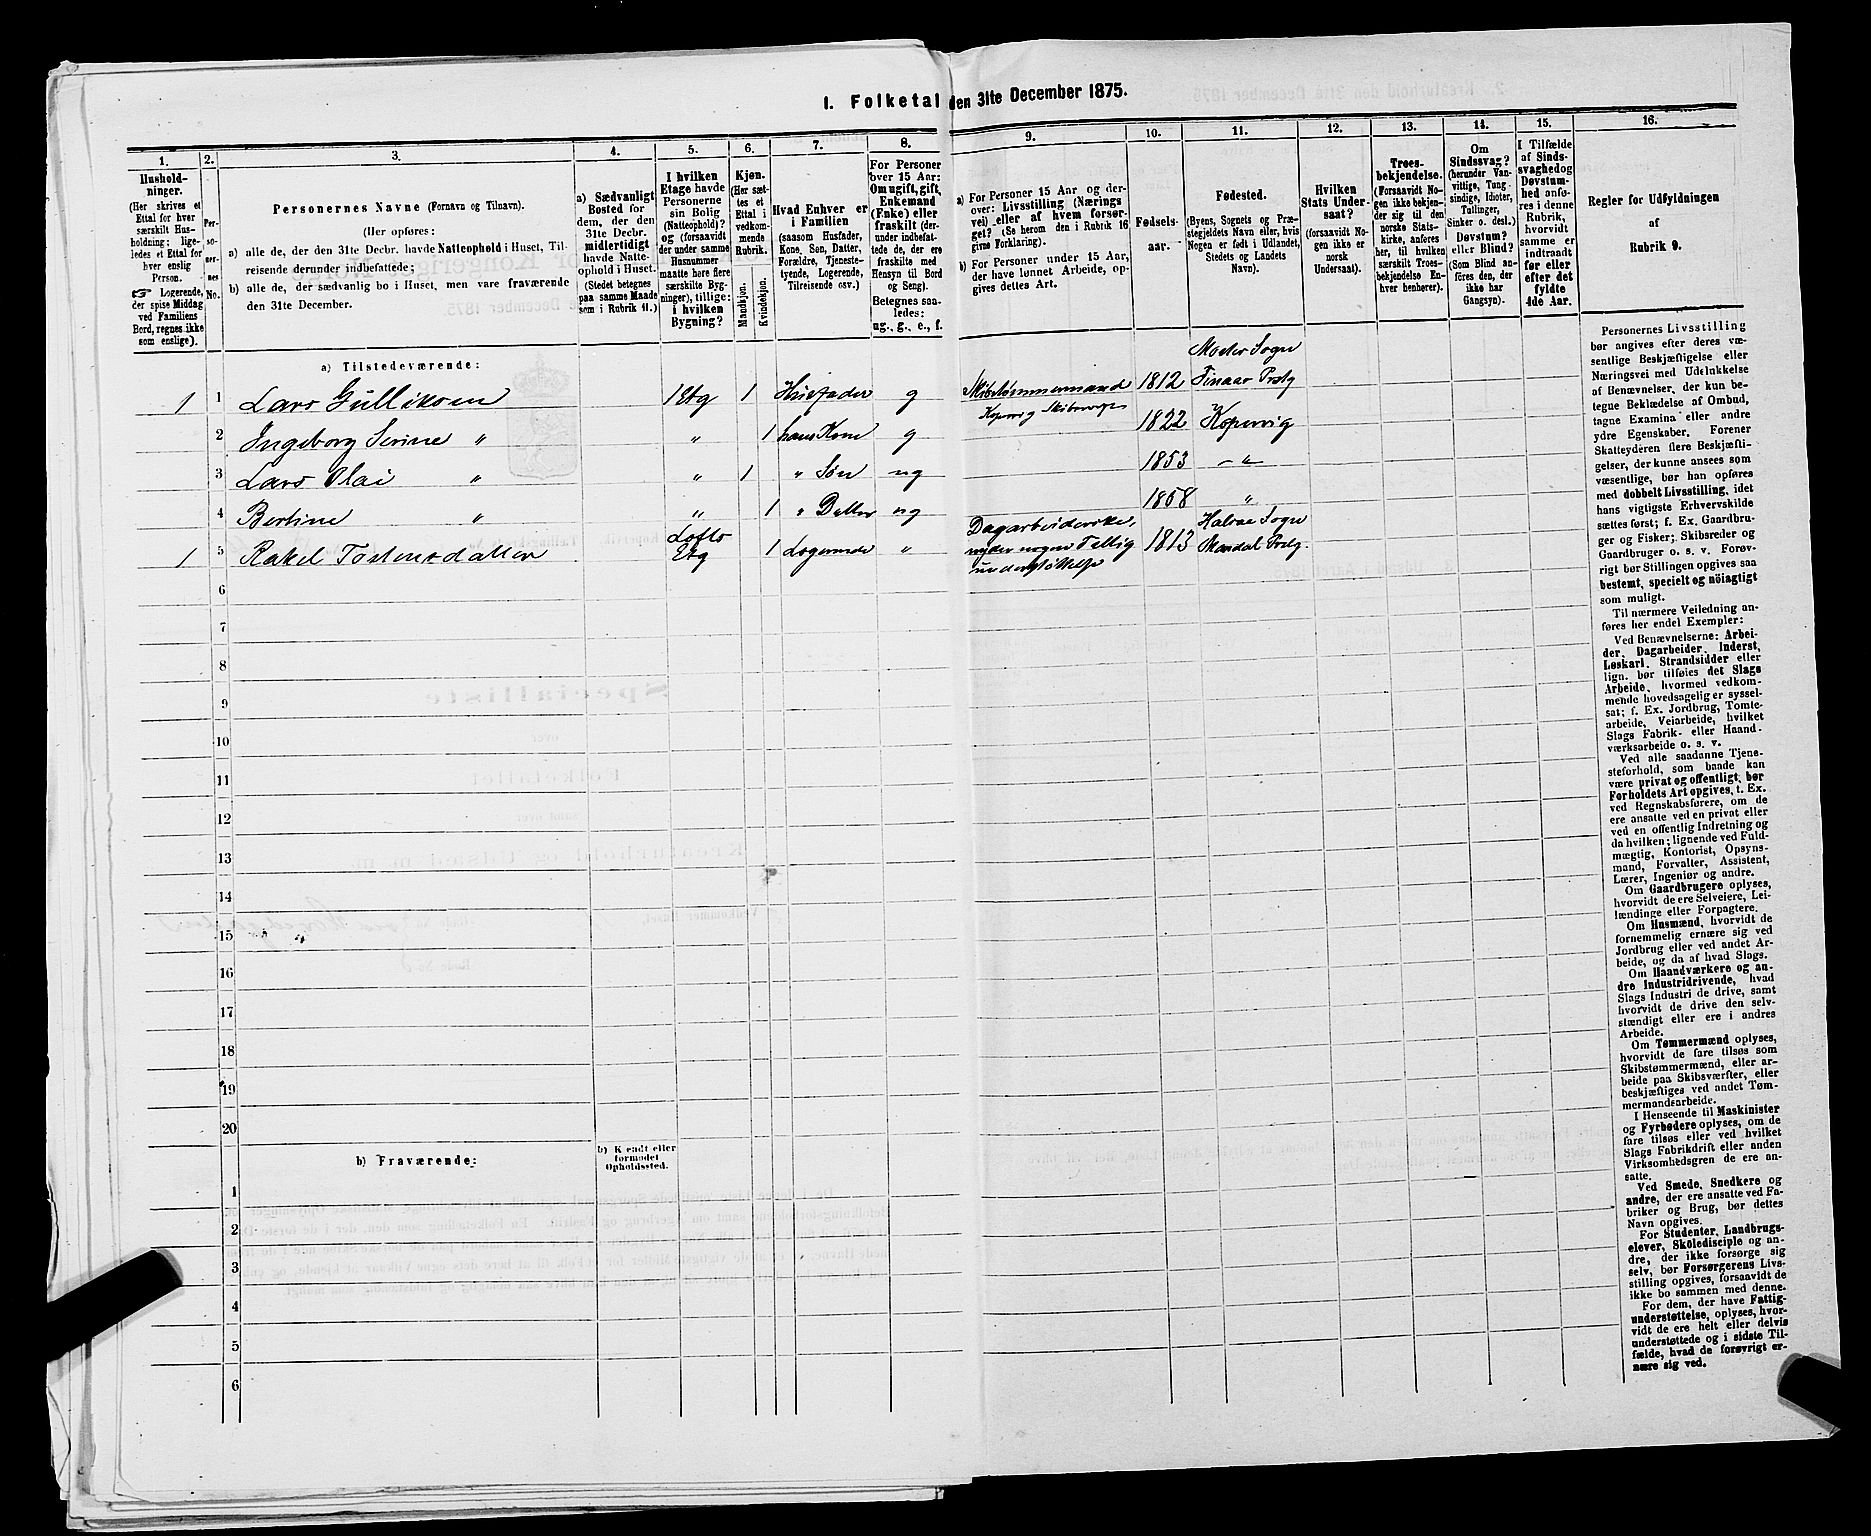 1. Folketal den 31te December 1875.
1. 2. 3. 4. 5. 6. 7. 8. 9. 10. 11. 12. 13. 14. 15. 16.
Hushold-
ninger.
(Her skrives et
Ettal for hver
særskilt Hus-
holdning; lige-
ledes et Ettal for
hver enslig
Person.
☞ Logerende,
der spise Middag
ved Familiens
Bord, regnes ikke
som enslige).
Per-
so-
ner-
nes
No.
Personernes Navne (Fornavn og Tilnavn).
(Her opføres:
a) alle de, der den 31te Decbr. havde Natteophold i Huset, Til-
reisende derunder indbefattede;
b) alle de, der sædvanlig bo i Huset, men vare fraværende
den 31te December.
a) Sædvanligt
Bosted for
dem, der den
31te Decbr.
midlertidigt
havde Natte-
ophold i Huset.
(Stedet betegnes
paa samme Maade
som i Rubrik 11.)
I hvilken
Etage havde
Personerne
sin Bolig
(Natteophold)?
og (forsaavidt
der under samme
Husnummer
maatte høre flere
særskilte Byg-
ninger), tillige:
i hvilken
Bygning?
Kjøn.
(Her sæt-
tes et
Ettal i
vedkom-
mende
Rubrik.
Mandkjøn.
Kvindekjøn.
Hvad Enhver er
i Familien
(saasom Husfader,
Kone, Søn, Datter,
Forældre, Tjeneste-
tyende, Logerende,
Tilreisende osv.)
For Personer
over 15 Aar:
Om ugift, gift,
Enkemand
(Enke) eller
fraskilt (der-
under indbefat-
tede de, der ere
fraskilte med
Hensyn til Bord
og Seng).
Betegnes saa-
ledes:
ug., g., e., f.
a) For Personer 15 Aar og der-
over: Livsstilling (Nærings
vei) eller af hvem forsør-
get? (Se herom den i Rubrik 16
givne Forklaring).
b) For Personer under 15 Aar,
der have lønnet Arbeide, op-
gives dettes Art.
Fødsels-
aar.
Fødested.
(Byens, Sognets og Præ-
stegjeldets Navn eller, hvis
Nogen er født i Udlandet,
Stedets og Landets
Navn).
Hvilken
Stats Under-
saat?
(forsaavidt No-
gen ikke er
norsk
Undersaat).
Troes-
bekjendelse.
(Forsaavidt No-
gen ikke bekjen-
der sig til den
norske Stats-
kirke, anføres
her, til hvilken
særskilt Troes-
bekjendelse En-
hver henhører).
Om
Sindssvag?
(herunder Van-
vittige, Tung-
sindige, Idioter,
Tullinger,
Sinker o. desl.)
Døvstum?
eller Blind?
(Som Blind an-
føres den, der
ikke har
Gangsyn).
I Tilfælde
af Sinds-
svaghed og
Døvstum-
hed anfø-
res i denne
Rubrik,
hvorvidt
samme er
indtraadt
før eller
efter det
fyldte
4de Aar.
Regler for Udfyldningen
af
Rubrik 9.
a) Tilstedeværende:
1 1 Lars Gullikssen 1 Etg 1 Husfader g Skibstømmermand 1812 Moster Sogn
Kopervig Finaas Prstg
2 Ingeborg Serine " " 1 hans Kone g 1822 Kopervig
3 Lars Olai " " 1 " Søn ug 1853 - " -
4 Bertine " " 1 " Datter ug 1858 "
1 5 Rakel Tostensdatter Lofts Etg 1 Logerende " Dagarbeiderske, 1813 Halsaa Sogn
nyder nogen Fattig Mandal Prstg.
understøttelse
6
7
8
9
10
11
12
13
14
15
16
17
18
19
20
b) Fraværende:
b) Kjendt eller
formodet
Opholdssted.
1
2
3
4
5
6
Personernes Livsstilling
bør angives efter deres væ-
sentlige Beskjæftigelse eller
Næringsvei med Udelukkelse
af Benævnelser, der kun be-
tegne Beklædelse af Ombud,
tagne Examina eller andre
ydre Egenskaber. Forener
Skatteyderen flere Beskjæfti-
gelser, der kunne ansees som
væsentlige, bør han opføres
med dobbelt Livsstilling, idet
hans vigtigste Erhvervskilde
sættes først; f. Ex. Gaardbru-
ger og Fisker; Skibsreder og
Gaardbruger o. s. v. Forøv-
rigt bør Stillingen opgives saa
bestemt, specielt og nöiagtigt
som muligt.
Til nærmere Veiledning an-
føres her endel Exempler:
Ved Benævnelserne: Arbei-
der, Dagarbeider, Inderst,
Løskarl, Strandsidder eller
lign. bør tilføies det Slags
Arbeide, hvormed vedkom-
mende hovedsagelig er syssel-
sat; f. Ex. Jordbrug, Tomte-
arbeide, Veiarbeide, hvilket
Slags Fabrik- eller Haand-
værksarbeide o. s. v.
Ved alle saadanne Tjene-
steforhold, som baade kan
være privat og offentligt, bør
Forholdets Art opgives, t. Ex.
ved Regnskabsførere, om de
ere ansatte ved en privat eller
ved en offentlig Indretning og
da hvilken; lignende ved Fuld-
mægtig, Kontorist, Opsyns-
mand, Forvalter, Assistent,
Lærer, Ingeniør og andre.
Om Gaardbrugere oplyses,
hvorvidt de ere Selveiere, Lei-
lændinge eller Forpagtere.
Om Husmænd, hvorvidt de
fornemmelig ernære sig ved
Jordbrug eller ved andet Ar-
beide, og da af hvad Slags.
Om Haandværkere og an-
dre Industridrivende, hvad
Slags Industri de drive, samt
hvorvidt de drive den selv-
stændigt eller ere i andres
Arbeide.
Om Tømmermænd oplyses,
hvorvidt de fare tilsøs som
Skibstømmermænd, eller ar-
beide paa Skibsværfter, eller
beskjæftiges ved andet Tøm-
mermandsarbeide.
I Henseende til Maskinister
og Fyrbødere oplyses, om de
fare tilsøs eller ved hvilket
Slags Fabrikdrift eller anden
Virksomhedsgren de ere an-
satte.
Ved Smede, Snedkere og
andre, der ere ansatte ved Fa-
briker og Brug, bør dettes
Navn opgives.
For Studenter, Landbrugs-
elever, Skoledisciple og an-
dre, der ikke forsørge sig
selv, bør Forsørgerens Livs-
stilling opgives, forsaavidt de
ikke bo sammen med denne.
For dem, der have Fattig-
understøttelse, oplyses, hvor-
vidt de ere helt eller delvis
understøttede og i sidste Til-
fælde, hvad de forøvrigt er-
nære sig ved.